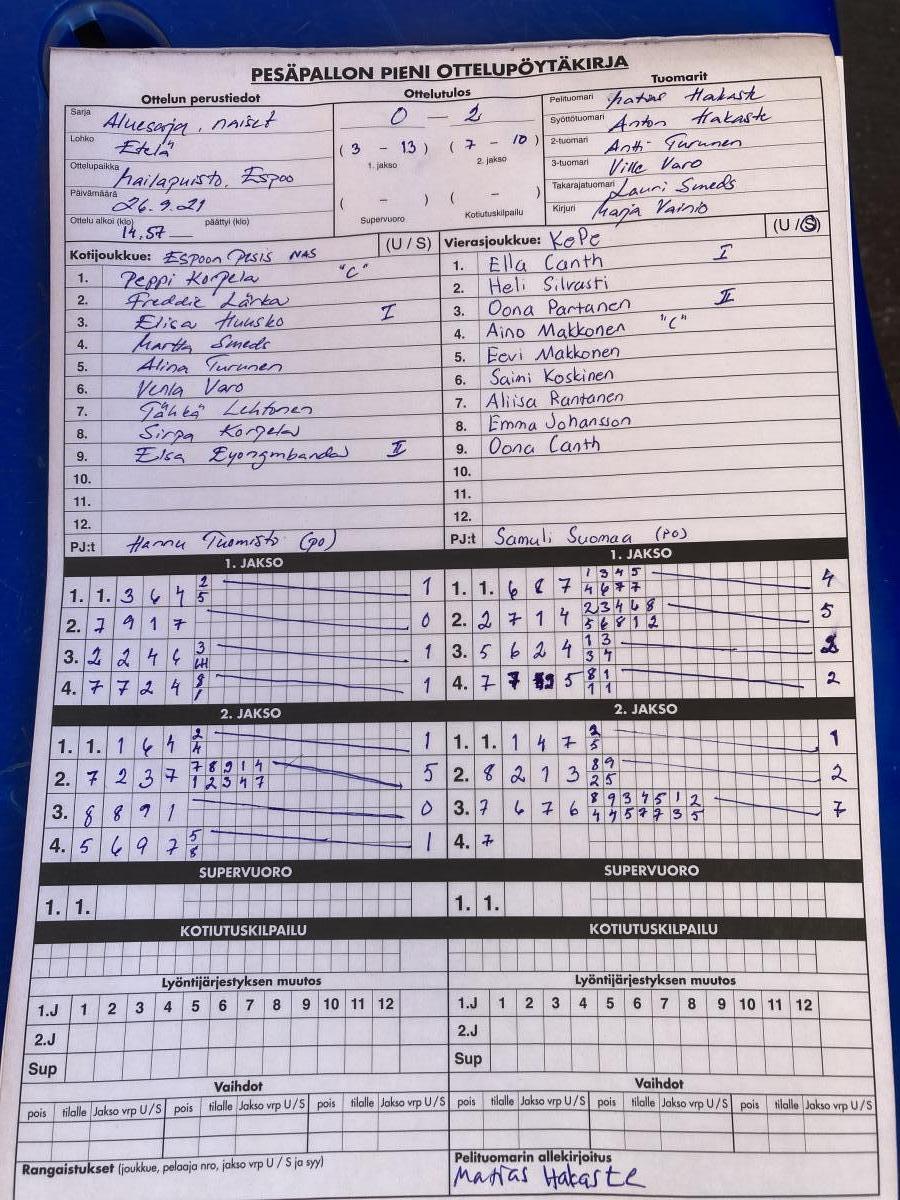 PESÄPALLON PIENI OTTELUPÖYTÄKIRJA
Ottelun perustiedot
Sarja Aluesarja, naiset
Lohko Etelä
Ottelupaikka Mailapuisto, Espoo
Päivämäärä 26.9.21
Ottelu alkoi (klo) 14.57 päättyi (klo)
Ottelutulos
0 - 2
( 3 - 13 ) ( 7 - 10 )
1. jakso 2. jakso
( - ) ( - )
Supervuoro Kotiutuskilpailu
Tuomarit
Pelituomari Matias Hakaste
Syöttötuomari Anton Hakaste
2-tuomari Antti Turunen
3-tuomari Ville Varo
Takarajatuomari Lauri Smeds
Kirjuri Marja Vainio
Kotijoukkue: ESPOON PESIS NAS (U / S)
1. Peppi Korpela "C"
2. Freddie Lärka
3. Elisa Huusko I
4. Martta Smeds
5. Alina Turunen
6. Venla Varo
7. Tähkä Lehtonen
8. Sirpa Korpela
9. Elsa Eyongmbanda II
10.
11.
12.
PJ:t Hannu Tuomisto (po)
Vierasjoukkue: KoPe (U / S)
1. Ella Canth I
2. Heli Silvasti
3. Oona Partanen II
4. Aino Makkonen "C"
5. Eevi Makkonen
6. Saini Koskinen
7. Aliisa Rantanen
8. Emma Johansson
9. Oona Canth
10.
11.
12.
PJ:t Samuli Suomaa (po)
1. JAKSO
1. 1. 3 6 4 2 1
5
2. 7 9 1 7 0
3. 2 2 4 6 3 1
4. 7 7 2 4 8 1
1
1. JAKSO
1. 1. 6 8 7 1 3 4 5 4
4 6 7 7
2. 2 7 1 4 2 3 4 6 8 5
5 6 8 1 2
3. 5 6 2 4 1 3 2
3 7
4. 7 7 5 8 1 2
1 1
2. JAKSO
1. 1. 1 6 4 2 1
4
2. 7 2 3 7 7 8 9 1 4 5
1 2 3 4 7
3. 8 8 9 1 0
4. 5 6 9 7 5 1
8
2. JAKSO
1. 1. 1 4 7 2 1
5
2. 8 2 1 3 8 9 2
2 5
3. 7 6 7 6 8 9 3 4 5 1 2 7
4 4 5 7 7 3 5
4. 7
SUPERVUORO
1. 1.
SUPERVUORO
1. 1.
KOTIUTUSKILPAILU
KOTIUTUSKILPAILU
Lyöntijärjestyksen muutos
1.J 1 2 3 4 5 6 7 8 9 10 11 12
2.J
Sup
Lyöntijärjestyksen muutos
1.J 1 2 3 4 5 6 7 8 9 10 11 12
2.J
Sup
Vaihdot
pois tilalle Jakso vrp U / S pois tilalle Jakso vrp U / S pois tilalle Jakso vrp U / S
Vaihdot
pois tilalle Jakso vrp U / S pois tilalle Jakso vrp U / S pois tilalle Jakso vrp U / S
Rangaistukset (joukkue, pelaaja nro, jakso vrp U / S ja syy)
Pelituomarin allekirjoitus
Matias Hakaste